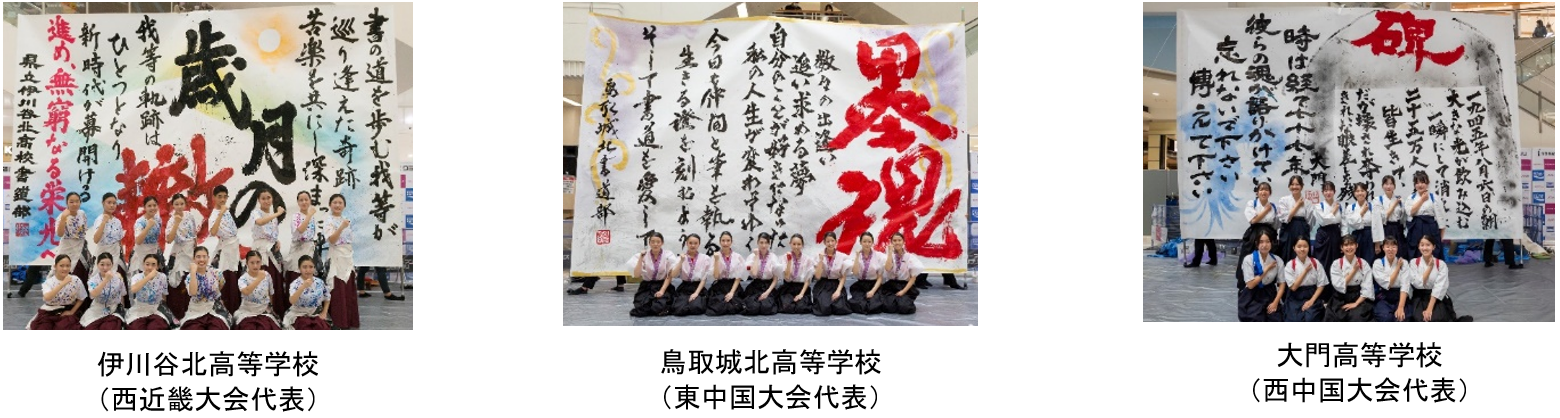 書の道を歩む我等が
巡り逢えた奇跡
苦楽を共にし深まっ
歳月の
轍
我等の軌跡は
ひとつとなり
新時代が幕開ける
進め、無窮なる栄光へ
県立伊川谷北高校書道部
伊川谷北高等学校
（西近畿大会代表）
墨魂
数々の出逢い
追い求める夢
自分のことが好きになった
私の人生が変わってゆく
今日も仲間と筆を執る
生きる證を刻むよう
そして書道を愛して
鳥取城北書道部
鳥取城北高等学校
（東中国大会代表）
碑
一九四五年八月六日の朝
大きな光が飲み込む
一瞬にして消し
二十五万人の
皆生き
大門
時は経て
彼らの魂が語りかけてい
忘れないで下さい
傳えて下さい
大門高等学校
（西中国大会代表）